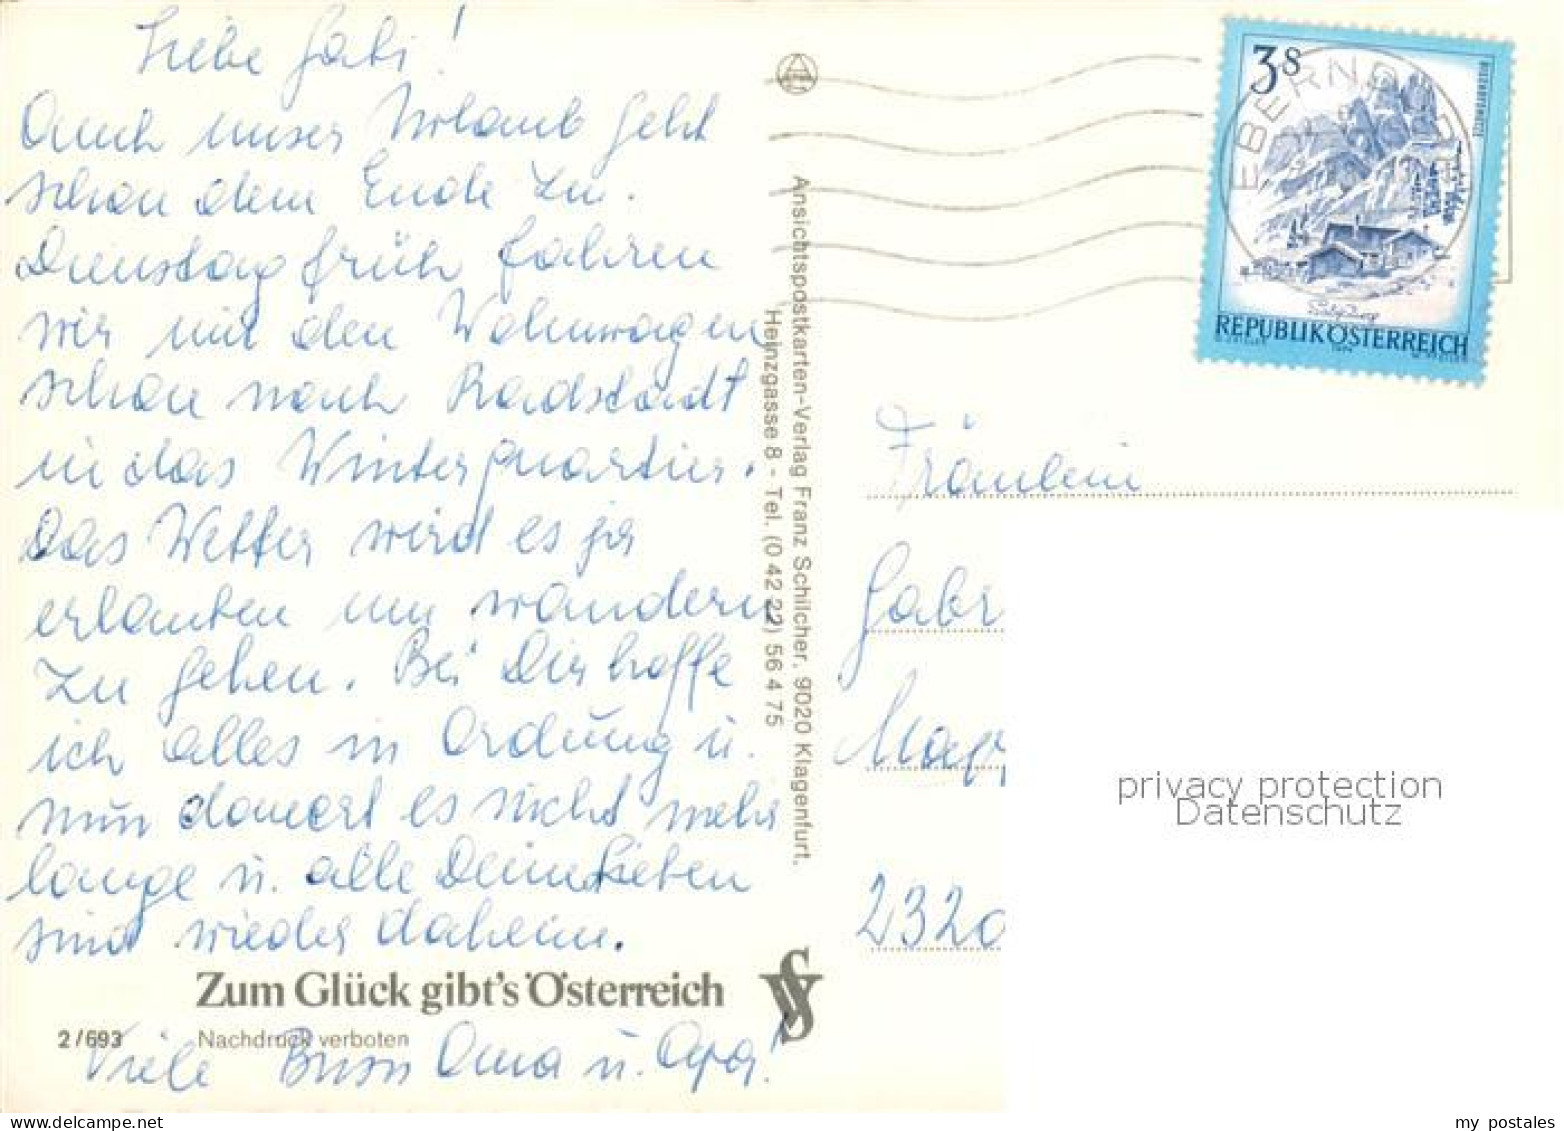 Liebe Gabi!
Auch unser Urlaub geht
schon dem Ende zu.
Dienstag früh fahren
wir mit den Wohnwagen
schon nach Radstadt
in das Winterquartier.
Das Wetter wird es ja
erlauben um wandern
zu gehen. Bei Dir hoffe
ich alles in Ordnung u.
nun dauert es nicht mehr
lange u. alle Deine Lieben
sind wieder daheim.
Zum Glück gibt's Österreich
2/693 Nachdruck verboten
Viele Bussi Oma u. Opa!
Ansichtspostkarten-Verlag Franz Schilcher, 9020 Klagenfurt,
Heinzgasse 8 - Tel. (0 42 22) 56 4 75
3S
EBERND
REPUBLIK ÖSTERREICH
Fräulein
Gabr
2320
privacy protection
Datenschutz
my postales